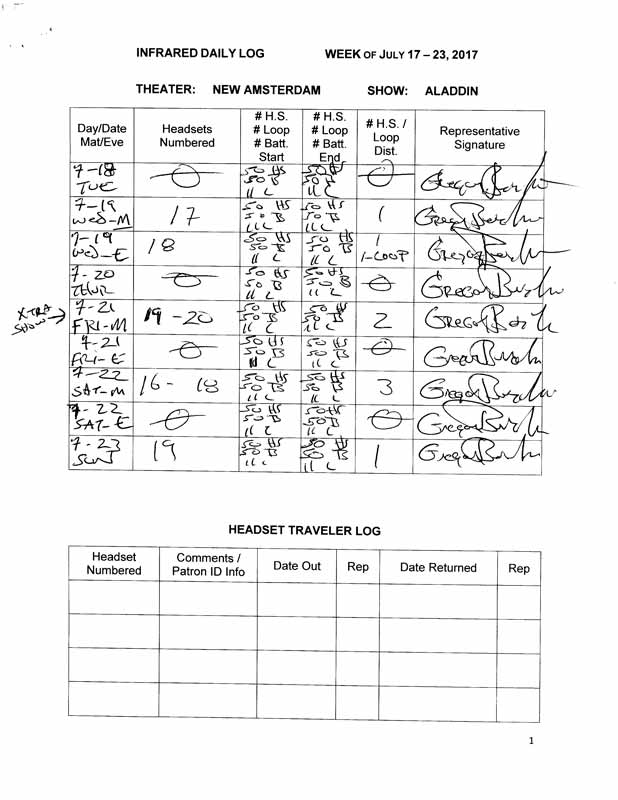 INFRARED DAILY LOG WEEK OF JULY 17 – 23, 2017
THEATER: NEW AMSTERDAM SHOW: ALADDIN
Day/Date Mat/Eve Headsets Numbered # H.S. # Loop # Batt. Start # H.S. # Loop # Batt. End # H.S. / Loop Dist. Representative Signature
7-18 TUE 0 50 HS 50 B 11 L 50 HS 50 B 11 L 0
7-19 WED-M 17 50 HS 50 B 11 L 50 HS 50 B 11 L 1
7-19 WED-E 18 50 HS 50 B 11 L 50 HS 50 B 11 L 1 1-LOOP
7-20 THUR 0 50 HS 50 B 11 L 50 HS 50 B 11 L 0
XTRA SHOW → 7-21 FRI-M 19-20 50 HS 50 B 11 L 50 HS 50 B 11 L 2
7-21 FRI-E 0 50 HS 50 B 11 L 50 HS 50 B 11 L 0
7-22 SAT-M 16-18 50 HS 50 B 11 L 50 HS 50 B 11 L 3
7-22 SAT-E 0 50 HS 50 B 11 L 50 HS 50 B 11 L 0
7-23 SUN 19 50 HS 50 B 11 L 50 HS 50 B 11 L 1
HEADSET TRAVELER LOG
Headset Numbered Comments / Patron ID Info Date Out Rep Date Returned Rep
1